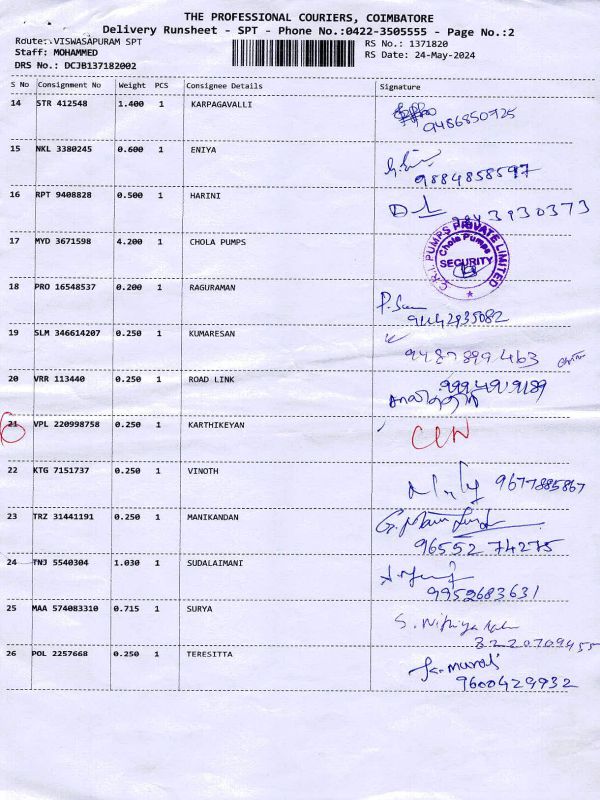 THE PROFESSIONAL COURIERS, COIMBATORE
Delivery Runsheet - SPT - Phone No.:0422-3505555 - Page No.:2
Route:.VISWASAPURAM SPT
RS No.: 1371820
Staff: MOHAMMED
RS Date: 24-May-2024
DRS No.: DCJB137182002
S No Consignment No Weight PCS Consignee Details Signature
14 STR 412548 1.400 1 KARPAGAVALLI
9486850925
15 NKL 3380245 0.600 1 ENIYA
9884858597
16 RPT 9408828 0.500 1 HARINI
17 MYD 3671598 4.200 1 CHOLA PUMPS
C.R.I. PUMPS PRIVATE LIMITED
Chola Pumps
SECURITY
18 PRO 16548537 0.200 1 RAGURAMAN
9442935082
19 SLM 346614207 0.250 1 KUMARESAN
9487899463
20 VRR 113440 0.250 1 ROAD LINK
21 VPL 220998758 0.250 1 KARTHIKEYAN
22 KTG 7151737 0.250 1 VINOTH
9677885867
23 TRZ 31441191 0.250 1 MANIKANDAN
96552 74275
24 TNJ 5540304 1.030 1 SUDALAIMANI
9952683631
25 MAA 574083310 0.715 1 SURYA
26 POL 2257668 0.250 1 TERESITTA
9600429932